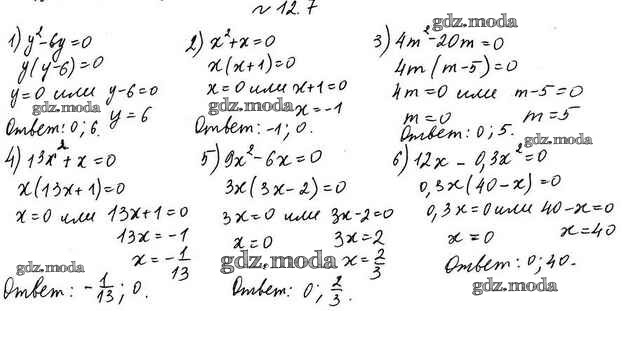 № 12.7
1) y²-6y=0
y(y-6)=0
y=0 или y-6=0
y=6
Ответ: 0; 6.
2) x²+x=0
x(x+1)=0
x=0 или x+1=0
x=-1
Ответ: -1; 0.
3) 4m²-20m=0
4m(m-5)=0
4m=0 или m-5=0
m=0 m=5
Ответ: 0; 5.
4) 13x²+x=0
x(13x+1)=0
x=0 или 13x+1=0
13x=-1
x=-1/13
Ответ: -1/13; 0.
5) 9x²-6x=0
3x(3x-2)=0
3x=0 или 3x-2=0
x=0 3x=2
x=2/3
Ответ: 0; 2/3.
6) 12x-0,3x²=0
0,3x(40-x)=0
0,3x=0 или 40-x=0
x=0 x=40
Ответ: 0; 40.
gdz.moda
gdz.moda
gdz.moda
gdz.moda
gdz.moda
gdz.moda
gdz.moda